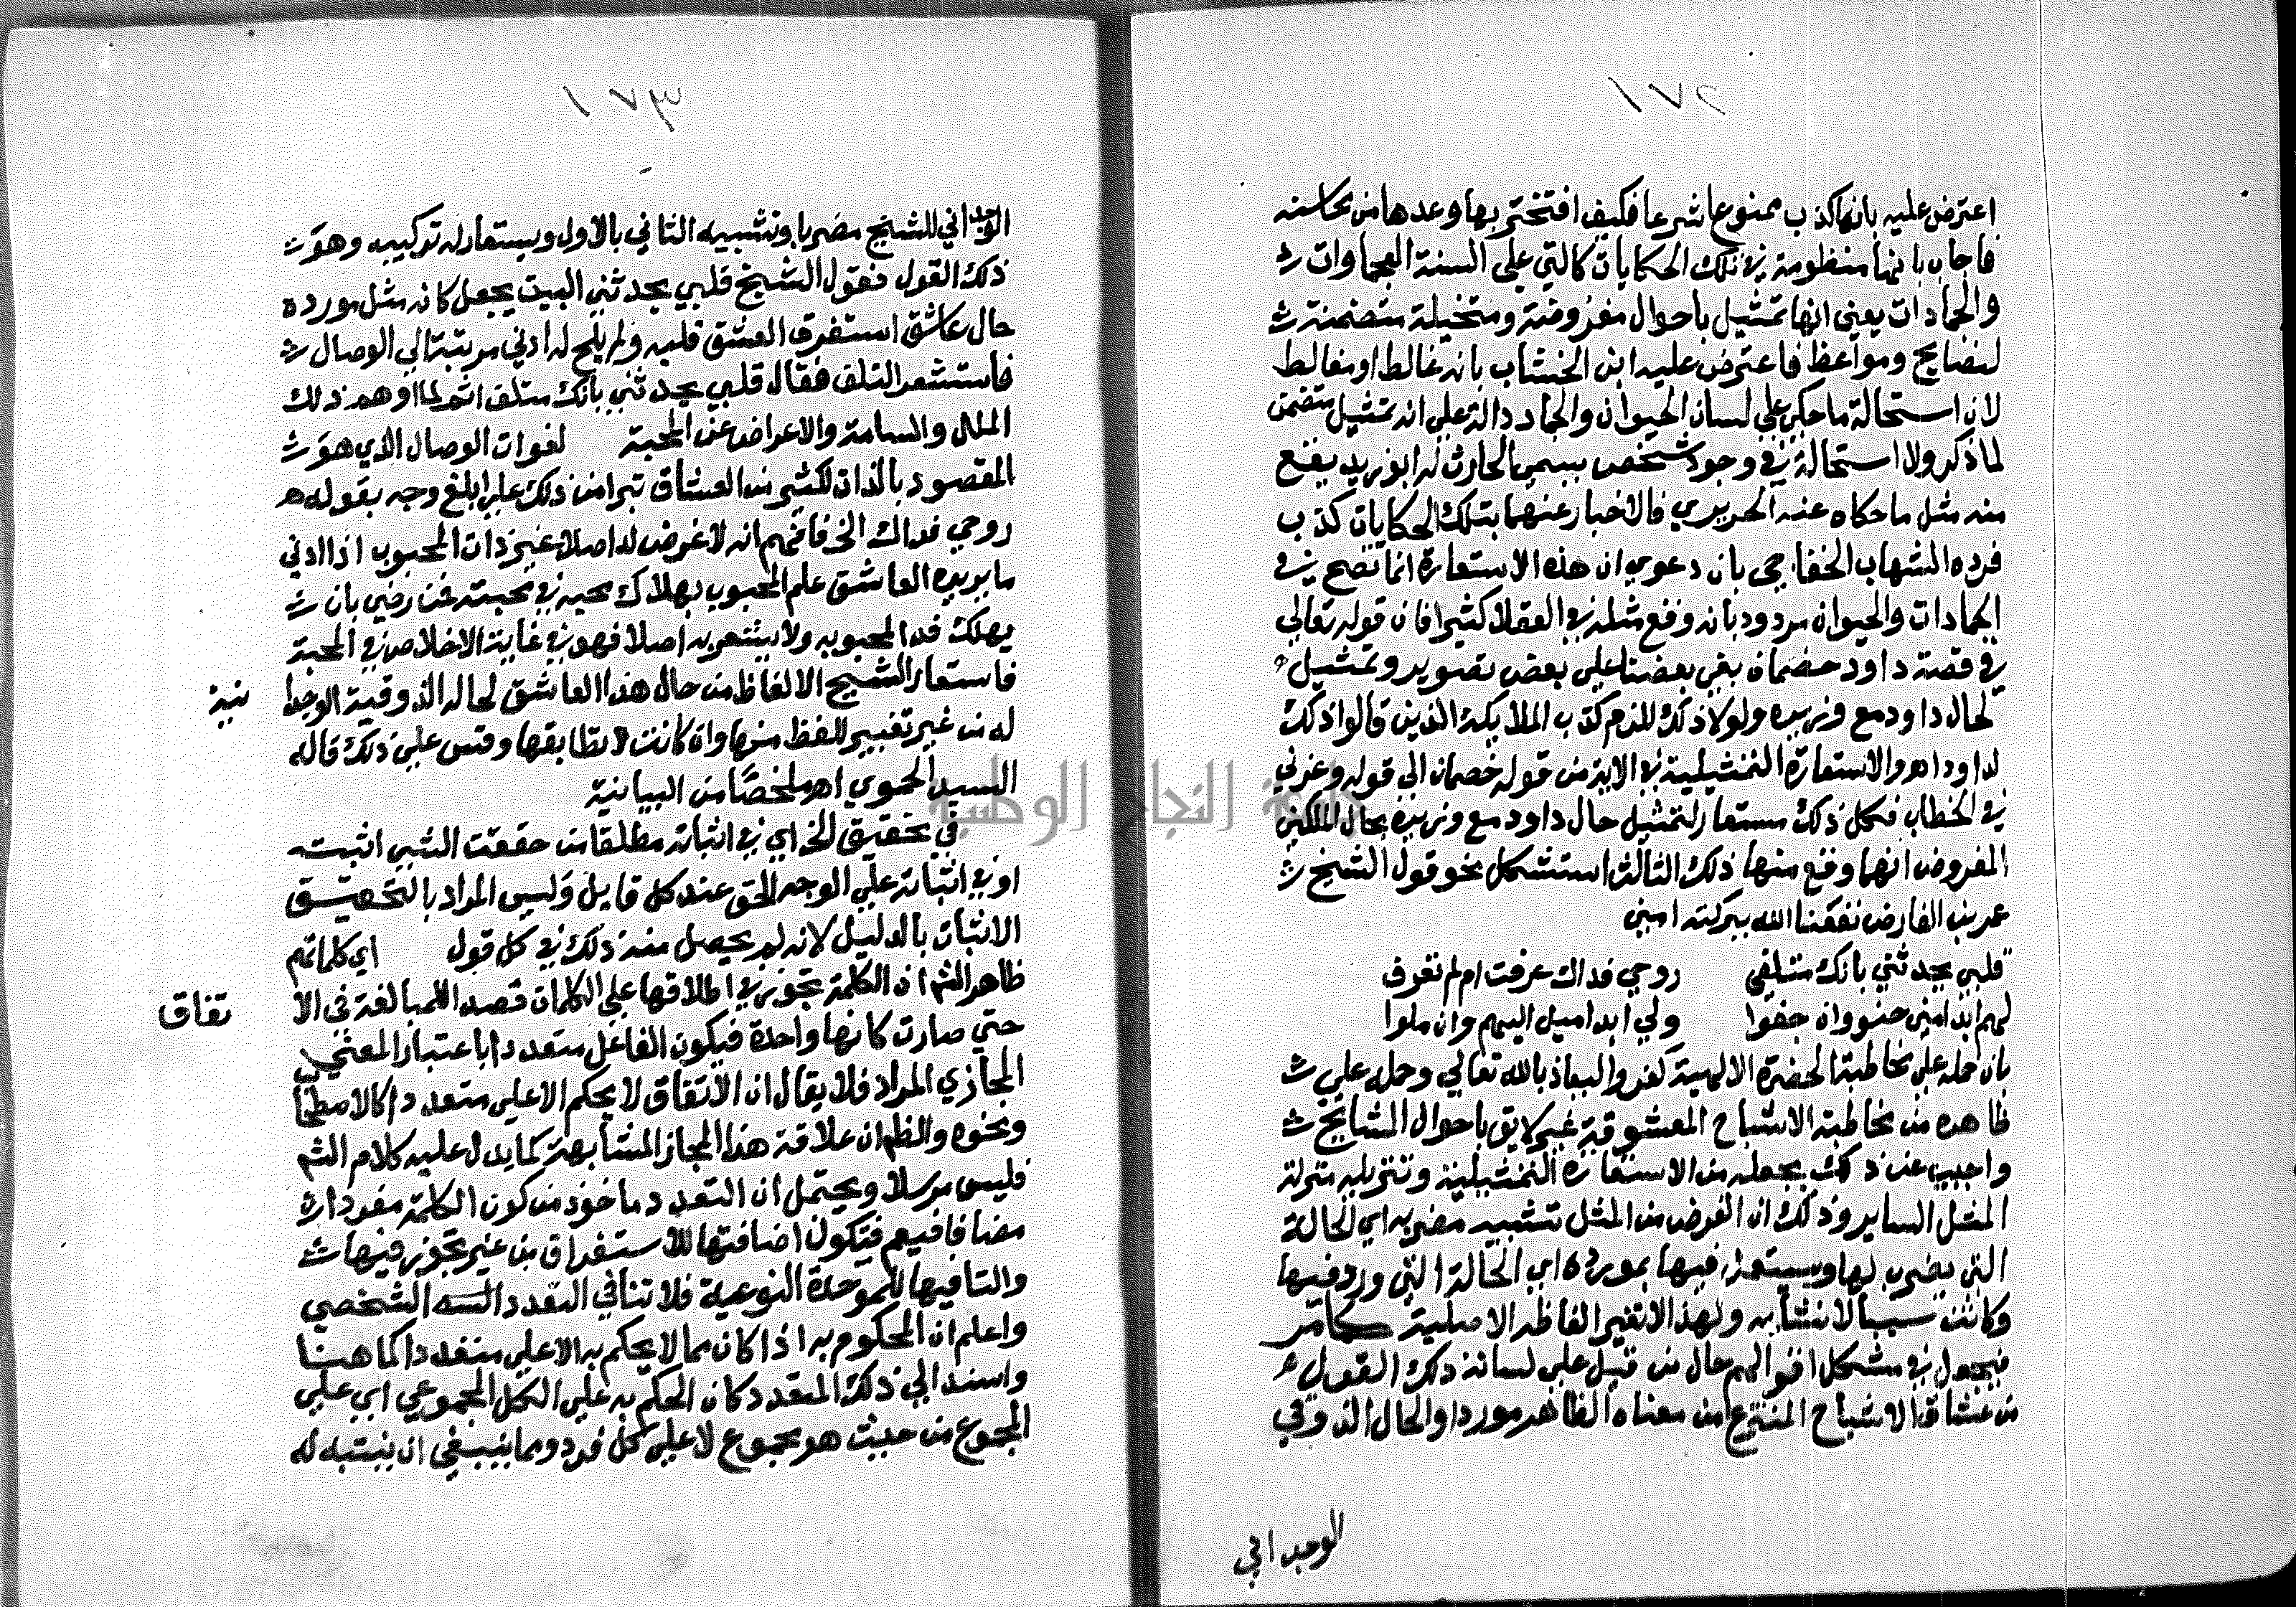 ١٧٢
اعترض عليه بانها كذب ممنوع شرعا فكيف افتخر بها وعدها من محاسنه
فاجاب بانها منظومة في تلك الحكايات كالتي على السنة العجماوات
والجمادات يعني انها تمثيل باحوال مفروضة ومتخيلة متضمنة
لنصايح ومواعظ فاعترض عليه ابن الخشاب بانه غالط او مغالط
لان استحالة ما حكي على لسان الحيوان والجماد دالة على انه تمثيل متضمن
لما ذكر ولا استحالة في وجود شخص يسمى الحارث او ابو زيد يقع
منه مثل ما حكاه عنه الحريري فالاخبار عنهما بتلك الحكايات كذب
فرده الشهاب الخفاجي بان دعوي ان هذه الاستعارة انما تصح في
الجمادات والحيوان مردود بانه وقع مثله في العقلا كثيرا فان قوله تعالي
في قصة داود خصمان بغى بعضنا على بعض تصوير وتمثيل
لحال داود مع وزيره ولولا ذلك للزم كذب الملايكة الذين قالوا ذلك
لداود اهـ والاستعارة التمثيلية في الاية من قوله خصمان الي قوله وعزني
في الخطاب فكل ذلك مستعار لتمثيل حال داود مع وزيره بحال الملكين
المفروض انهما وقع منهما ذلك الثالث استشكل نحو قول الشيخ
عمر بن الفارض نفعنا الله ببركته امين
قلبي يحدثني بانك متلفي روحي فداك عرفت ام لم تعرف
لهم ابدا مني حنو وان جفوا ولي ابدا ميل اليهم وان ملوا
بان حمله على مخاطبة الحضرة الالهية كفر والعياذ بالله تعالي وحمله على
ظاهره من مخاطبة الاشباح المعشوقة غير لايق باحوال المشايخ
واجيب عن ذلك بجعله من الاستعارة التمثيلية وتنزيله منزلة
المثل الساير وذلك ان الغرض من المثل تشبيه مضربه اي الحالة
التي يضرب لها ويستعمل فيها بمورده اي الحالة التي ورد فيها
وكانت سببا لانشائه ولهذا لا تغير الفاظه الاصلية كما مر
فيجعل في مشكل اقوالهم حال من قيل على لسانه ذلك القول
من عشاق الاشباح المنتزع من معناه الظاهر موردا والحال الذوقي
الوجداني
١٧٣
الوجداني للشيخ مضربا وتشبيه الثاني بالاول ويستعار له تركيبه وهو
ذلك القول فقول الشيخ قلبي يحدثني البيت يجعل كانه مثل مورده
حال عاشق استغرق العشق قلبه ولم يلح له ادني مرتبة الي الوصال
فاستشعر التلف فقال قلبي يحدثني بانك متلفي ثم لما اوهم ذلك
الملال والسامة والاعراض عن المحبة لفوات الوصال الذي هو
المقصود بالذات لكثير من العشاق تبرا من ذلك على ابلغ وجه بقوله
روحي فداك الخ فافهم انه لا غرض له اصلا غير ذات المحبوب اذ ادني
ما يريده العاشق علم المحبوب بهلاك محبه في محبته فمن رضي بان
يهلك فدا لمحبوبه ولا يشعر به اصلا فهو في غاية الاخلاص في المحبة
فاستعار الشيخ الالفاظ من حال هذا العاشق لحاله الذوقية الوجدا
نية
له من غير تغيير للفظ منها وان كانت لا تطابقها وقس على ذلك قاله
السيد الحموي اهـ ملخصا من البيانية
في تحقيق الخ اي في اثباته مطلقا من حققت الشي اثبته
او في اثباته على الوجه الحق عند كل قايل وليس المراد بالتحقيق
الاثبات بالدليل لانه لم يحصل منه ذلك في كل قول اي كلماتهم
ظاهر الشم ان الكلمة تجوز في اطلاقها على الكلمات قصدا للمبالغة في الا
تفاق
حتي صارت كانها واحدة فيكون الفاعل متعددا باعتبار المعني
المجازي المراد فلا يقال ان الاتفاق لا يحكم الا على متعدد كالاصطلاح
ونحوه والظم ان علاقة هذا المجاز المشابهة كما يدل عليه كلام الشم
فليس مرسلا ويحتمل ان التعدد ماخوذ من كون الكلمة مفردا
مضافا فيعم فتكون اضافتها للاستغراق من غير تجوز فيها
والتا فيها للوحدة النوعية فلا تنافي التعدد الشخصي
واعلم ان المحكوم به اذا كان مما لا يحكم به الا على متعدد كما هنا
واسند الي ذلك المتعدد كان الحكم به على الكل المجموعي اي على
المجموع من حيث هو مجموع لا على كل فرد ومما ينبغي ان يتنبه له
جامعة النجاح الوطنية